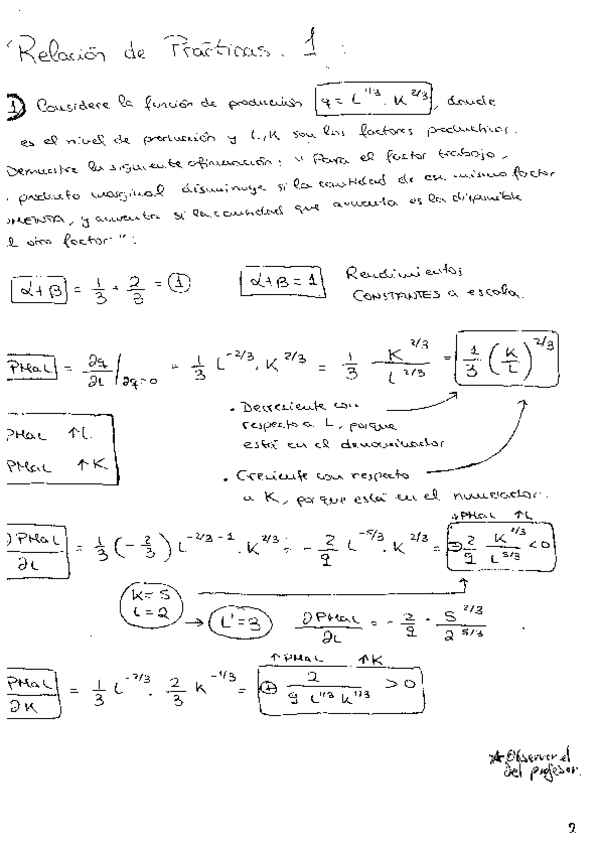 Relación de Prácticas. 1:
1) Considere la función de producción q = L^1/3 · K^2/3, donde
es el nivel de producción y L, K son los factores productivos.
Demuestre la siguiente afirmación: "Para el factor trabajo,
producto marginal disminuye si la cantidad de ese mismo factor
MENTA, y aumenta si la cantidad que aumenta es la disponible
l otro factor":
α+β = 1/3 + 2/3 = 1   α+β = 1   Rendimientos
CONSTANTES a escala.
PMaL = ∂q/∂L |∂q=0 = 1/3 L^-2/3 · K^2/3 = 1/3 K^2/3 / L^2/3 = 1/3 (K/L)^2/3
• Decreciente con
respecto a L, porque
está en el denominador
PMaL ↑L.
PMaL ↑K.
• Creciente con respecto
a K, porque está en el numerador.
↓PMaL ↑L
∂PMaL/∂L = 1/3 (-2/3) L^-2/3-1 · K^2/3 = - 2/9 L^-5/3 · K^2/3 = ⊖ 2/9 K^2/3 / L^5/3 < 0
K = 5
L = 2 → L' = 3   ∂PMaL/∂L = - 2/9 · 5^2/3 / 2^5/3
↑PMaL ↑K
PMaL/∂K = 1/3 L^-2/3 · 2/3 K^-1/3 = ⊕ 2 / 9 L^1/3 K^1/3 > 0
* Observar el
del profesor.
2